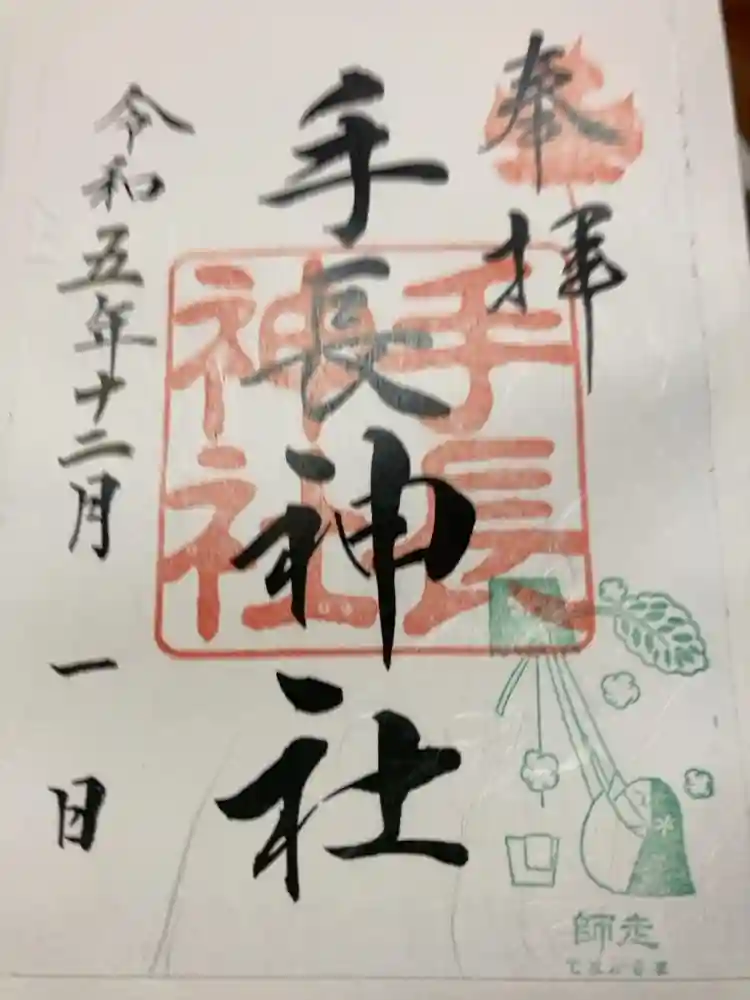 奉拝
手長神社
手長神社
令和五年十二月 一日
師走